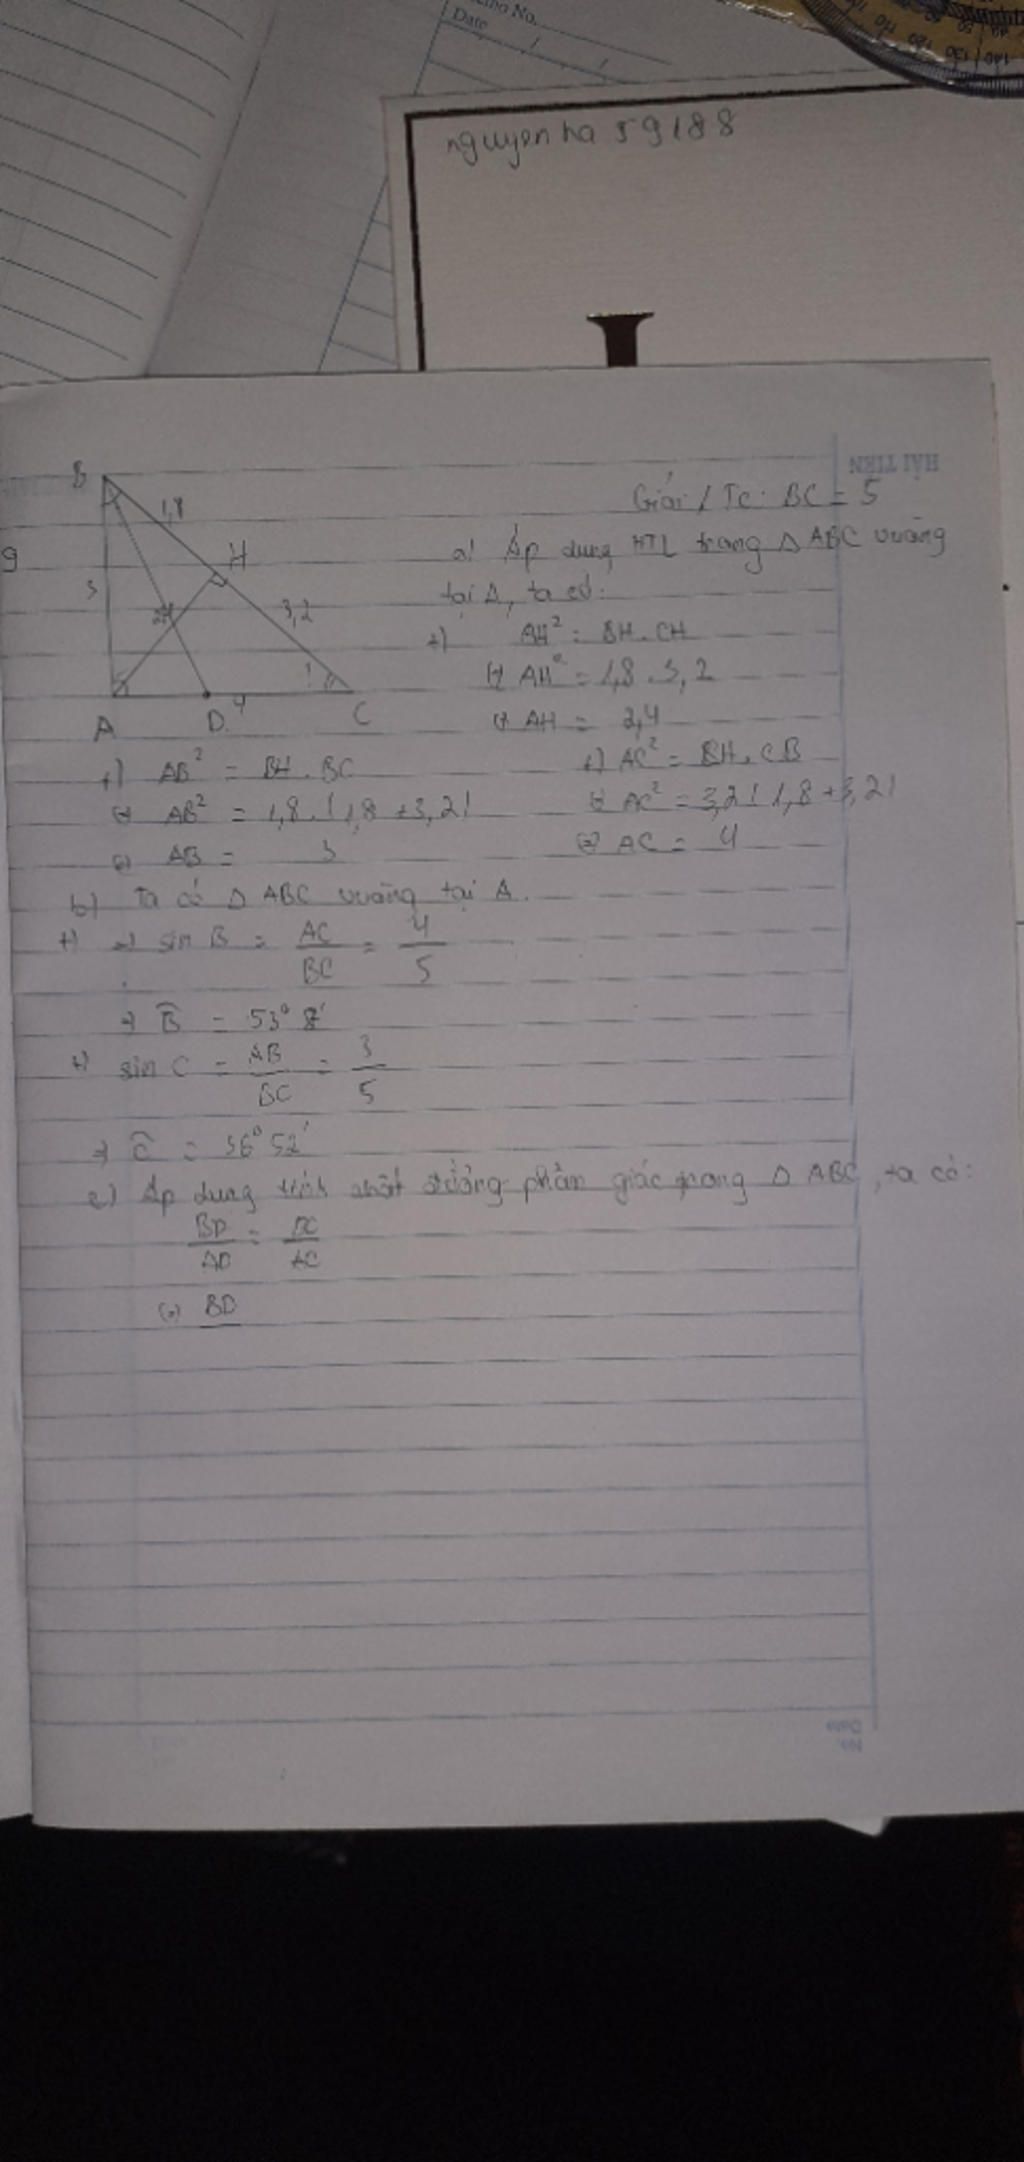 No.
Date
nguyenha 59188
HẢI TIẾN
B
1,8
H
3
3,2
A
D
4
C
Giải / Tc: BC = 5
a) Áp dụng HTL trong Δ ABC vuông
tại A, ta có:
+) AH² = BH . CH
AH² = 1,8 . 3,2
AH = 2,4
+) AB² = BH . BC
AB² = 1,8 . (1,8 + 3,2)
AB = 3
+) AC² = BH . CB
AC² = 3,2 ( 1,8 + 3,2)
AC = 4
b) Ta có Δ ABC vuông tại A.
+) => sin B = AC/BC = 4/5
=> B̂ = 53° 8'
+) sin C = AB/BC = 3/5
=> Ĉ = 36° 52'
c) Áp dụng tính chất đường phân giác trong Δ ABC, ta có:
BD/AD = DC/AC
BD
No.
Date